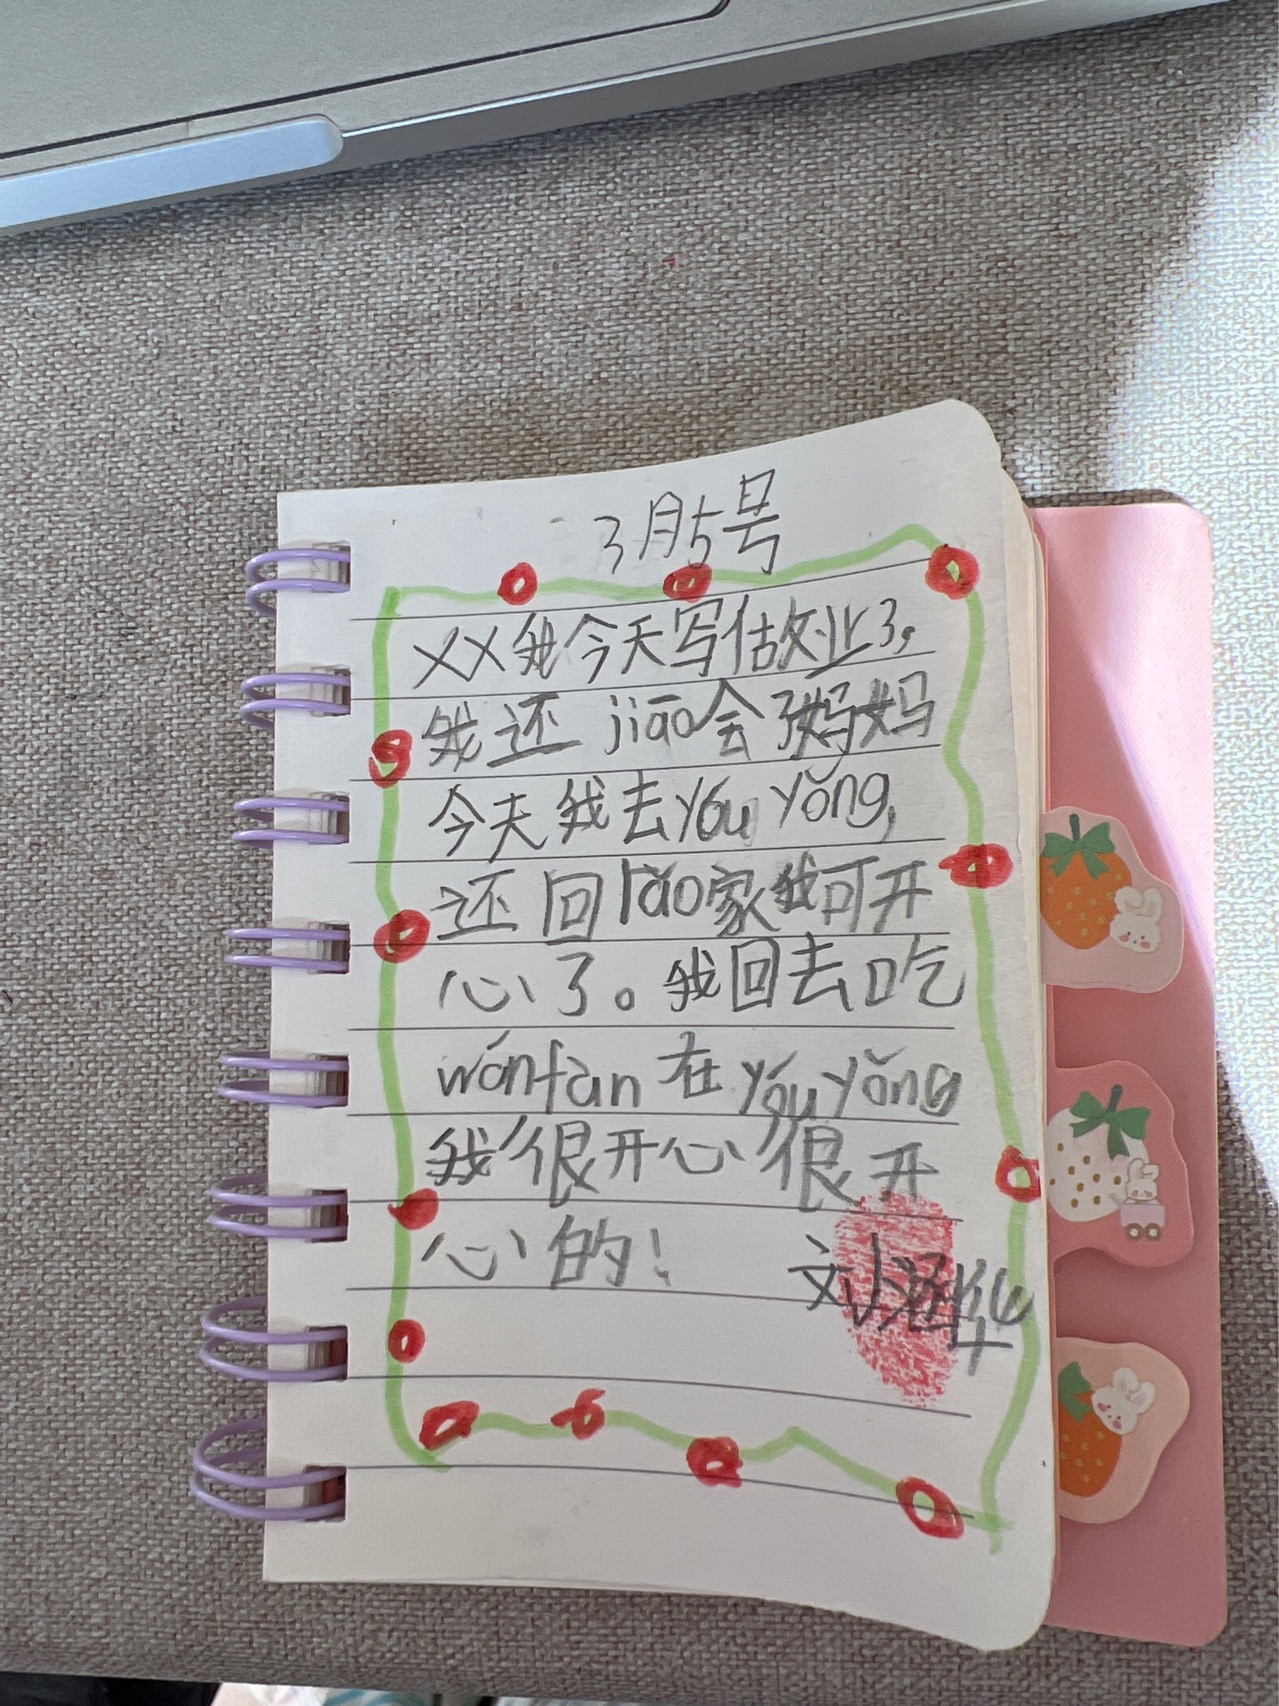 3月5号
XX我今天写估攵业了,
我还jiāo会了妈妈
今天我去yóu yǒng,
还回lǎo家我可开
心了。我回去吃
wǎnfàn在yóu yǒng
我很开心很开
心的!
刘涵华